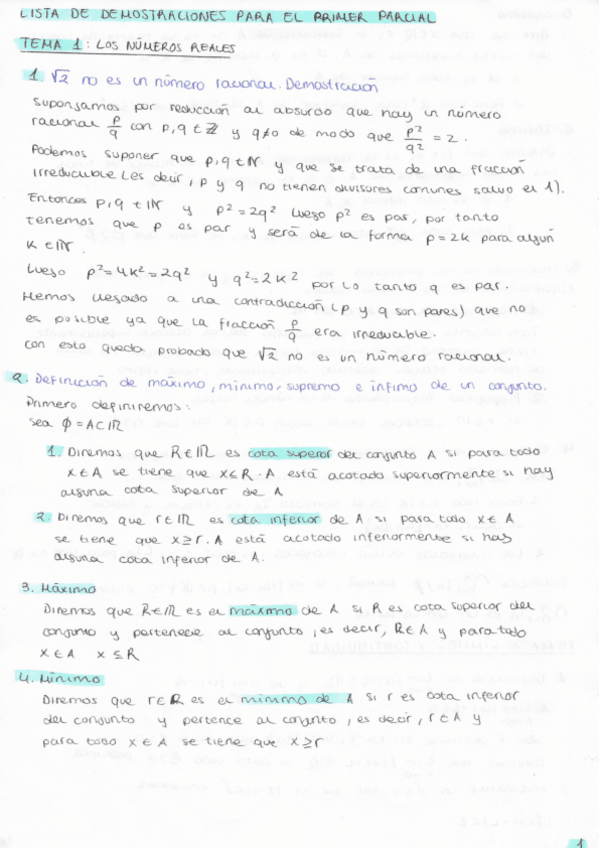 LISTA DE DEMOSTRACIONES PARA EL PRIMER PARCIAL
TEMA 1: LOS NÚMEROS REALES
1 √2 no es un número racional. Demostración
Supongamos por reducción al absurdo que hay un número
racional p/q con p,q ∈ ℤ y q≠0 de modo que p²/q² = 2.
Podemos suponer que p,q ∈ ℕ y que se trata de una fracción
irreducible (es decir, p y q no tienen divisores comunes salvo el 1).
Entonces p,q ∈ ℕ y p² = 2q² luego p² es par, por tanto
tenemos que p es par y será de la forma p=2k para algún
k ∈ ℕ.
Luego p²=4k²=2q² y q²=2k² por lo tanto q es par.
Hemos llegado a una contradicción (p y q son pares) que no
es posible ya que la fracción p/q era irreducible.
con esto queda probado que √2 no es un número racional.
2. Definición de máximo, mínimo, supremo e ínfimo de un conjunto.
Primero definiremos:
sea ϕ = A⊂ℝ
1. Diremos que R∈ℝ es cota superior del conjunto A si para todo
x∈A se tiene que x≤R. A está acotado superiormente si hay
alguna cota superior de A
2. Diremos que r∈ℝ es cota inferior de A si para todo x∈A
se tiene que x≥r. A está acotado inferiormente si hay
alguna cota inferior de A.
3. Máximo
Diremos que R∈ℝ es el máximo de A si R es cota superior del
conjunto y pertenece al conjunto, es decir, R∈A y para todo
x∈A x≤R
4. Mínimo
Diremos que r∈ℝ es el mínimo de A si r es cota inferior
del conjunto y pertence al conjunto, es decir, r∈A y
para todo x∈A se tiene que x≥r
1